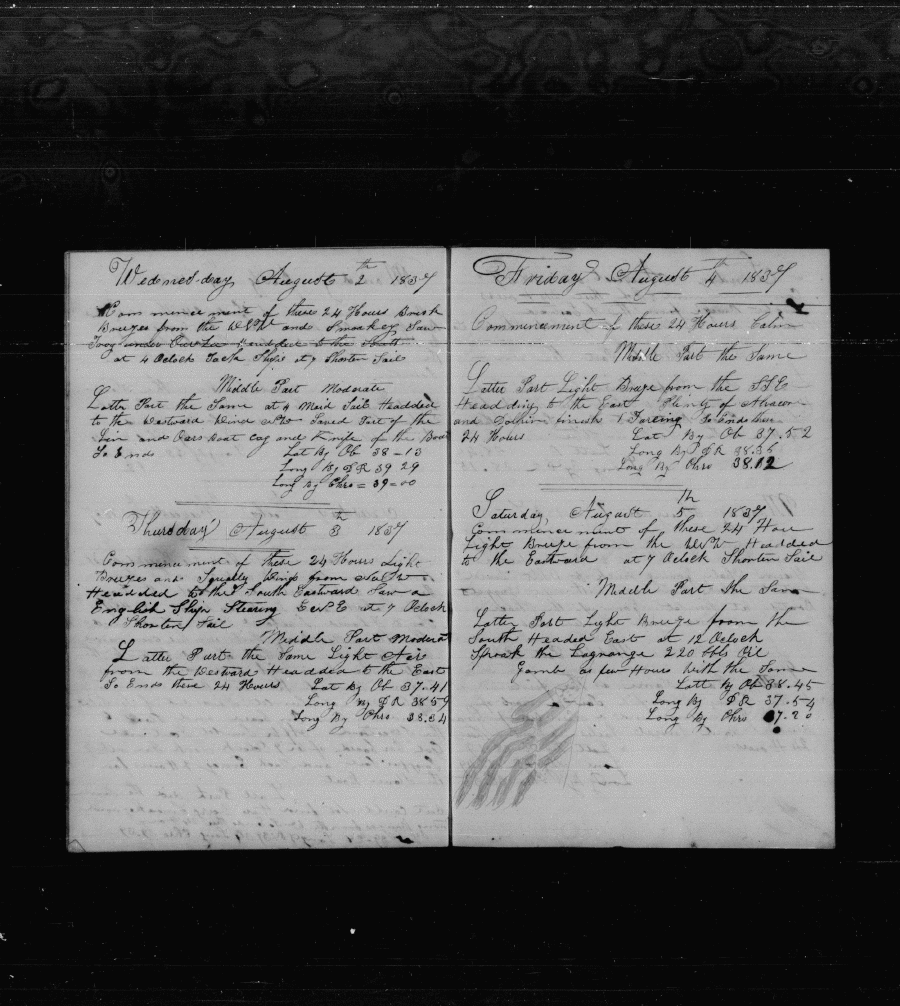 Wednesday August 2th 1837
Commencement of these 24 Hours Brisk
Breezes from the WSW and Smokey Saw
Foog under
at 4 Oclock Tack Ship at 7 Shorten Sail
Middle Part Moderate
Latter Part the Same at 4 Maid Sail Headded
to the Westward Wind Saved Part of the
and Oars boat Cag and Knife of the Bow
So Ends
Lat By Ob 38-13
Long By DR 39 29
Long By Chro = 39=00
Thursday August 3th 1837
Commencement of these 24 Hours Light
Breezes and Squally from
Headded to the South Eastward Saw a
English Ship Stearing ENE at 7 Oclock
Shorten Sail
Middle Part Moderat
Latter Part the Same Light Air
from the Westward Headded to the East
So Ends these 24 Hours Lat By Ob 37.41
Long By DR 38 59
Long By Chro 38.34
Friday August 4th 1837
Commencement of these 24 Hours Calm
Middle Part the Same
Latter Part Light Breeze from the SSE
Headding to the East Plenty of
and So Ends these
24 Hours Lat By Ob 37.52
Long By DR 38.36
Long By Chro 38.12
Saturday August 5th 1837
Commencement of these 24 Hour
Light Breeze from the Headded
to the Eastward at 7 Oclock Shorten Sail
Middle Part the Same
Latter Part Light Breeze from the
South Headed East at 12 Oclock
Spoak the Lagrange 220 bbls Oil
Gamb a few Hours with the Same
Latt By Ob 38.45
Long By DR 37.54
Long By Chro 37.20